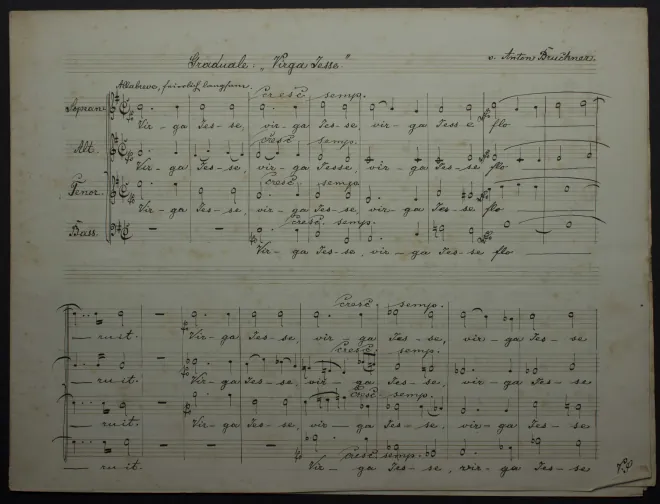 Graduale: „Virga Jesse"
v. Anton Bruckner.
Allabreve, feierlich langsam.
cresc semp.
Sopran.
Vir - ga Jes - se, vir - ga Jes - se, vir - ga Jess e flo
cresc semp.
Alt.
Vir - ga Jes - se, vir - ga Jesse, vir - ga Jes - se flo
cresc semp.
Tenor.
Vir - ga Jes - se, vir - ga Jes - se, vir - ga Jes - se flo
cresc semp.
Bass.
Vir - ga Jes - se, vir - ga Jes - se flo
cresc. semp.
ru - it. Vir - ga Jes - se, vir - ga Jes - se, vir - ga Jes - se
cresc. semp.
ru - it. Vir - ga Jes - se, vir - ga Jes - se, vir - ga Jes - se
cresc semp.
ru - it. Vir - ga Jes - se, vir - ga Jes - se, vir - ga Jes - se
cresc semp.
ru - it. Vir - ga Jes - se, vir - ga Jes - se